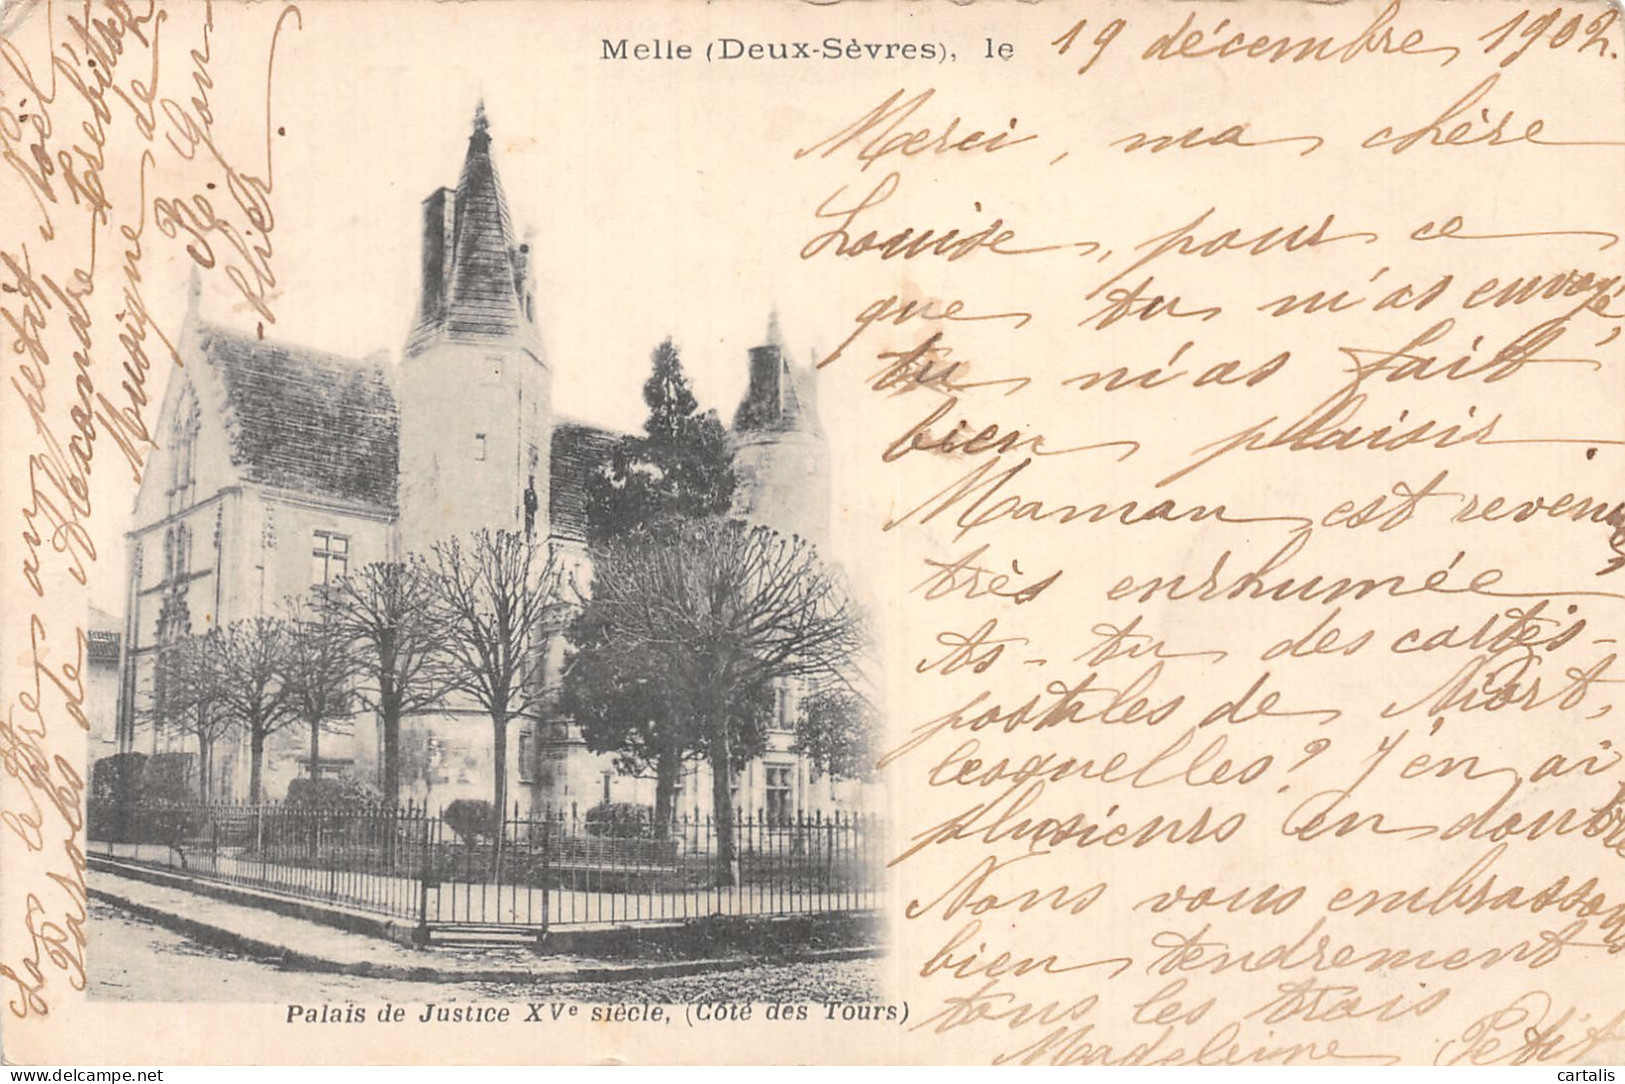 Melle (Deux-Sèvres), le 19 décembre 1902.
Merci, ma chère
Louise, pour ce
que tu m'as envoyé,
tu m'as fait
bien plaisir.
Maman est revenue
très enrhumée
As-tu des cartes-
postales de Niort,
lesquelles? J'en ai
plusieurs en double
Nous vous embrassons
bien tendrement
tous les trois
Madeleine Petit
Palais de Justice XVe siècle, (Côté des Tours)
Les lettres au petit Noël
Paroles de Alexandre
Musique de
R. Gon-
-thier.
cartalis